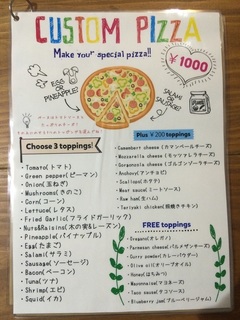 CUSTOM PIZZA
Make you" special pizza!!
¥1000
EGG OR PINEAPPLE?
SALAMI OR SAUSAGE?
Choose 3 toppings!
・Tomato(トマト)
・Green pepper(ピーマン)
・Onion(玉ねぎ)
・Mushrooms(きのこ)
・Corn(コーン)
・Lettuce(レタス)
・Fried Garlic(フライドガーリック)
・Nuts&Raisins(木の実&レーズン)
・Pineapple(パイナップル)
・Egg(たまご)
・Salami(サラミ)
・Sausage(ソーセージ)
・Bacon(ベーコン)
・Tuna(ツナ)
・Shrimp(エビ)
・Squid(イカ)
Plus ¥200 toppings
・Camembert cheese(カマンベールチーズ)
・Mozzarella cheese(モッツァレラチーズ)
・Gorgonzola cheese(ゴルゴンゾーラチーズ)
・Anchovy(アンチョビ)
・Scallops(ホタテ)
・Meat sauce(ミートソース)
・Raw ham(生ハム)
・Teriyaki chicken(照焼きチキン)
FREE toppings
・Oregano(オレガノ)
・Parmesan cheese(パルメザンチーズ)
・Curry powder(カレーパウダー)
・Olive oil(オリーブオイル)
・Honey(はちみつ)
・Mayonnaise(マヨネーズ)
・Taco sauce(サルサソース)
・Blueberry jam(ブルーベリージャム)